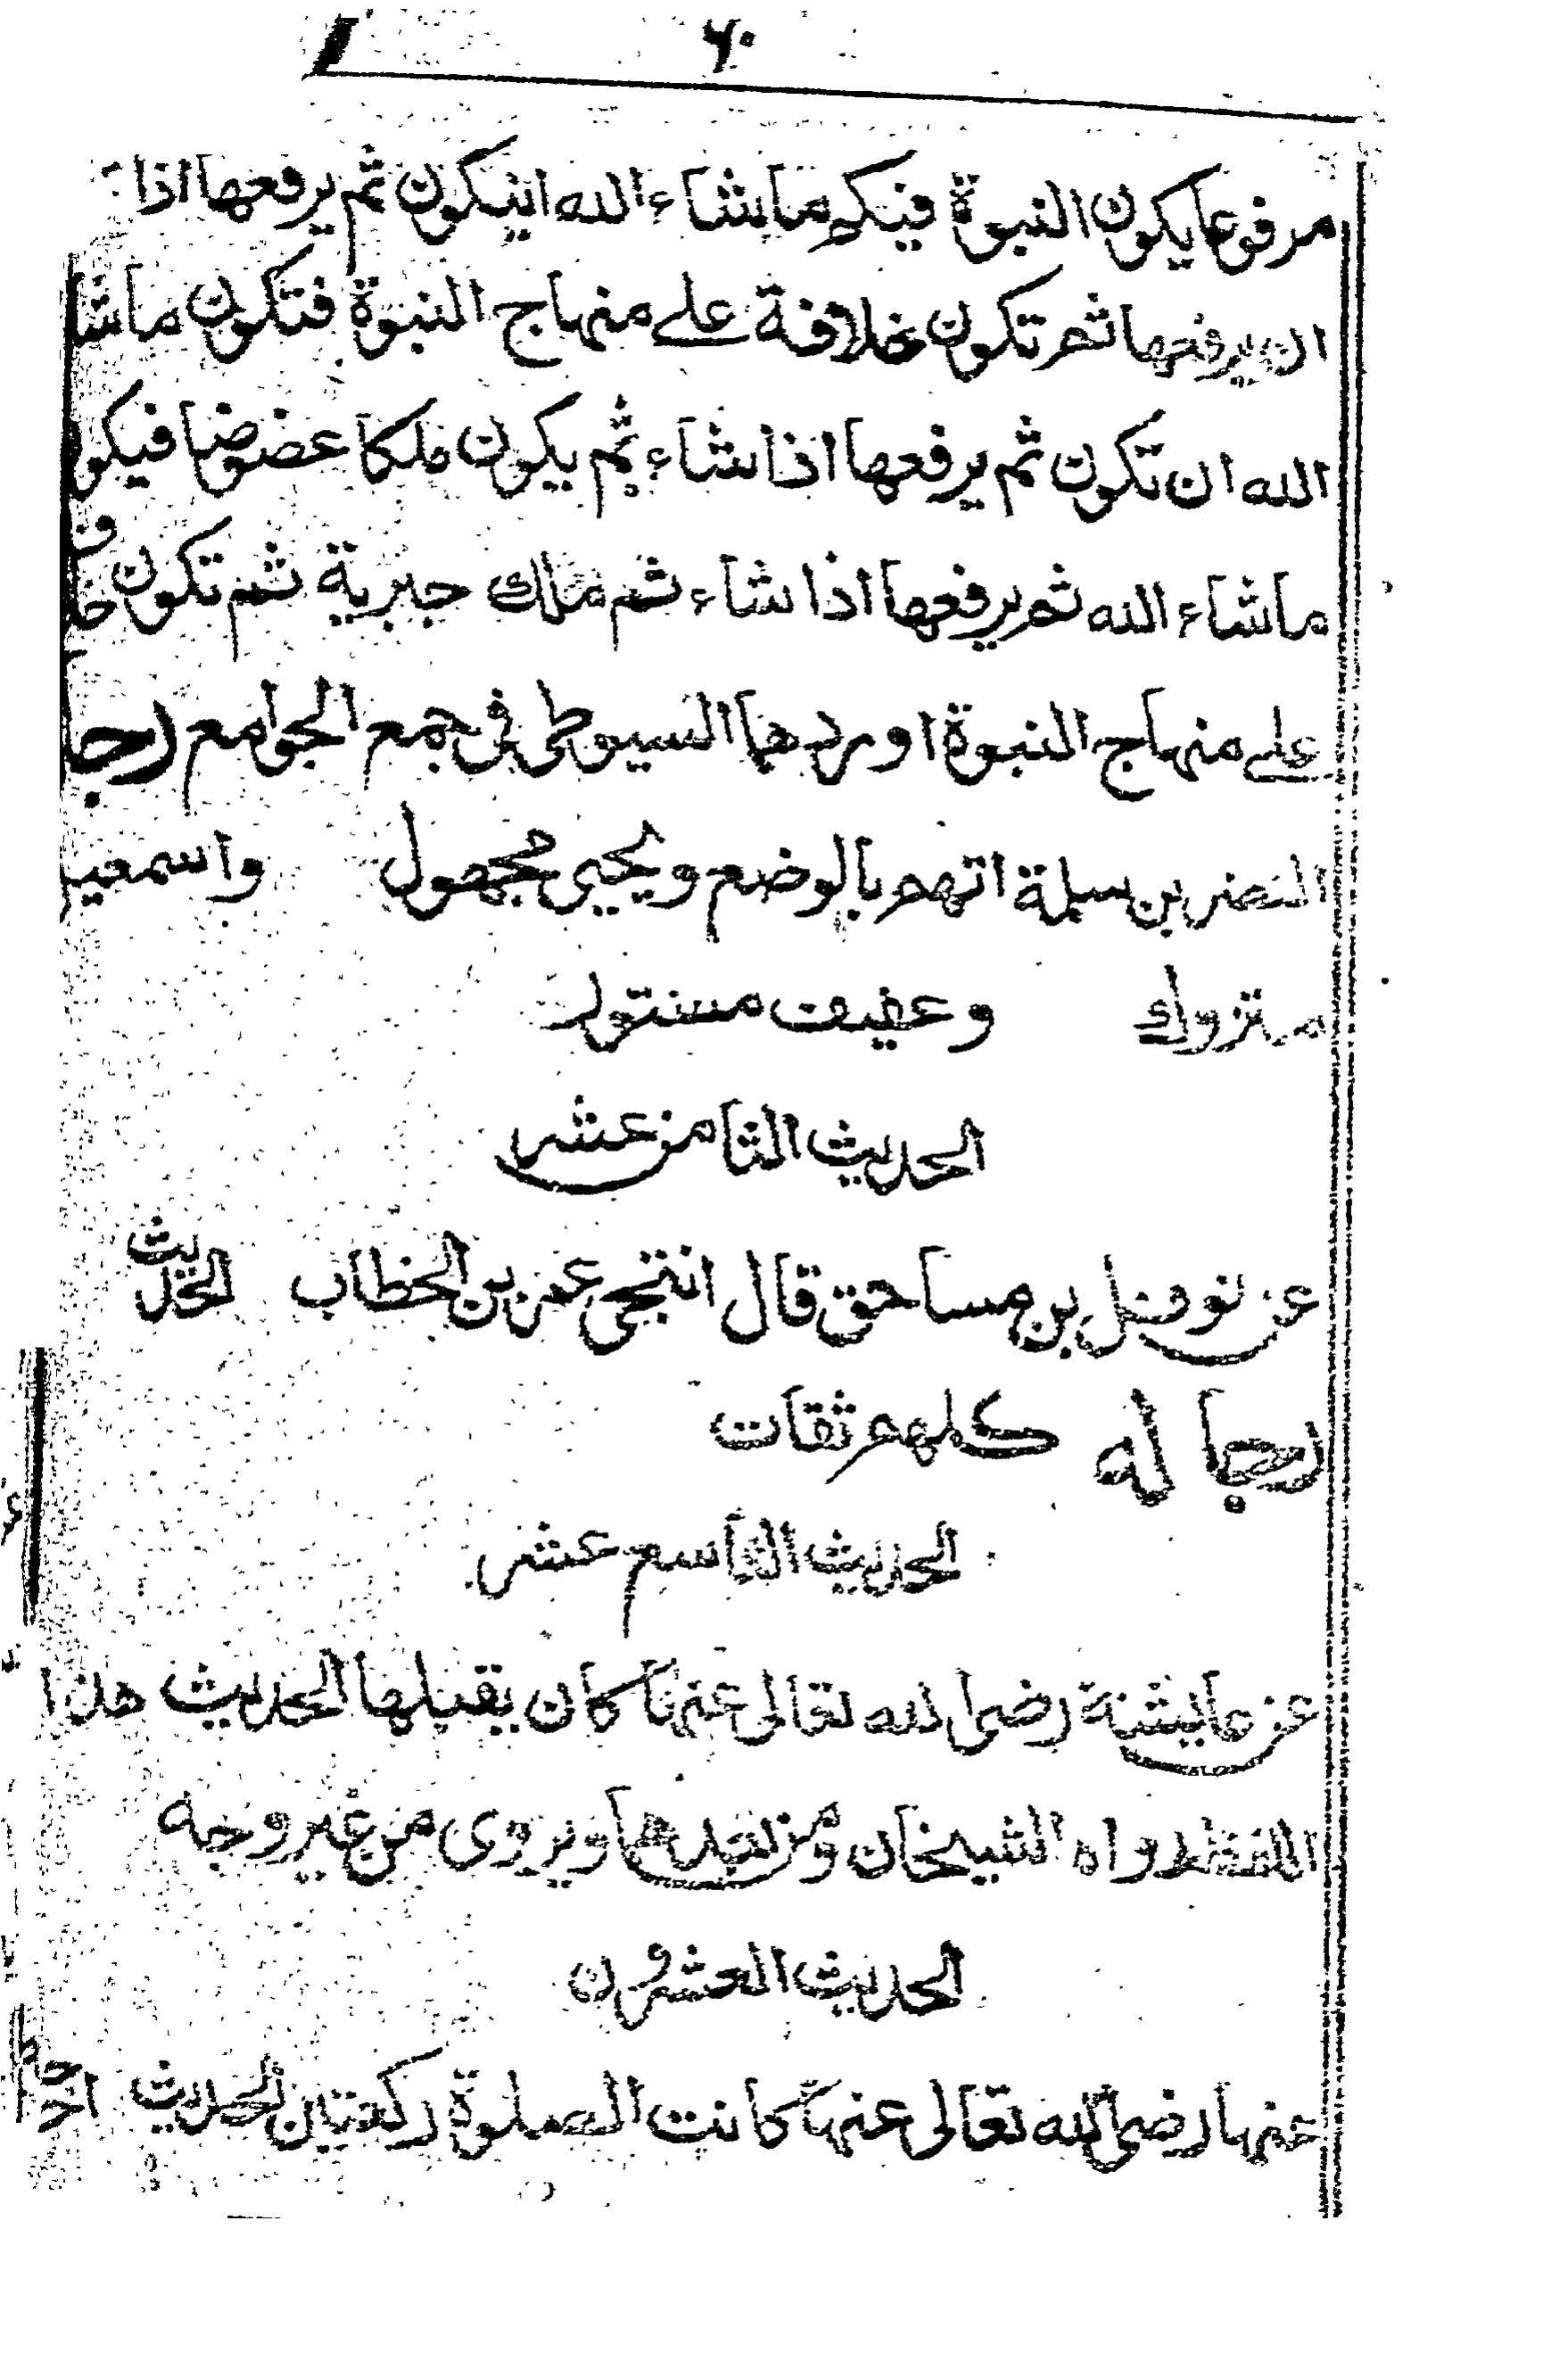 ۶۰
مرفوعا يكون النبوة فيكم ما شاء الله ان يكون ثم يرفعها اذا
ان يرفعها ثم تكون خلافة على منهاج النبوة فتكون ما شا
الله ان تكون ثم يرفعها اذا شاء ثم يكون ملكا عضوضا فيكو
ما شاء الله ثم يرفعها اذا شاء ثم ملك جبرية ثم تكون
على منهاج النبوة اوردهما السيوطى فى جمع الجوامع رجا
النضر بن سلمة اتهم بالوضع ويحيى مجهول واسمعيـ
متروك وعفيف مستور
الحديث الثامن عشر
عن نوفل بن مساحق قال انتجى عمر بن الخطاب الحديث
رجاله كلهم ثقات
الحديث التاسع عشر
عن عايشة رضى الله تعالى عنها كان يقبلها الحديث هذا
اللفظ رواه الشيخان ومن بعدهما ويروى من غير وجه
الحديث العشرون
عنها رضى الله تعالى عنها كانت الصلوة ركعتين الحديث